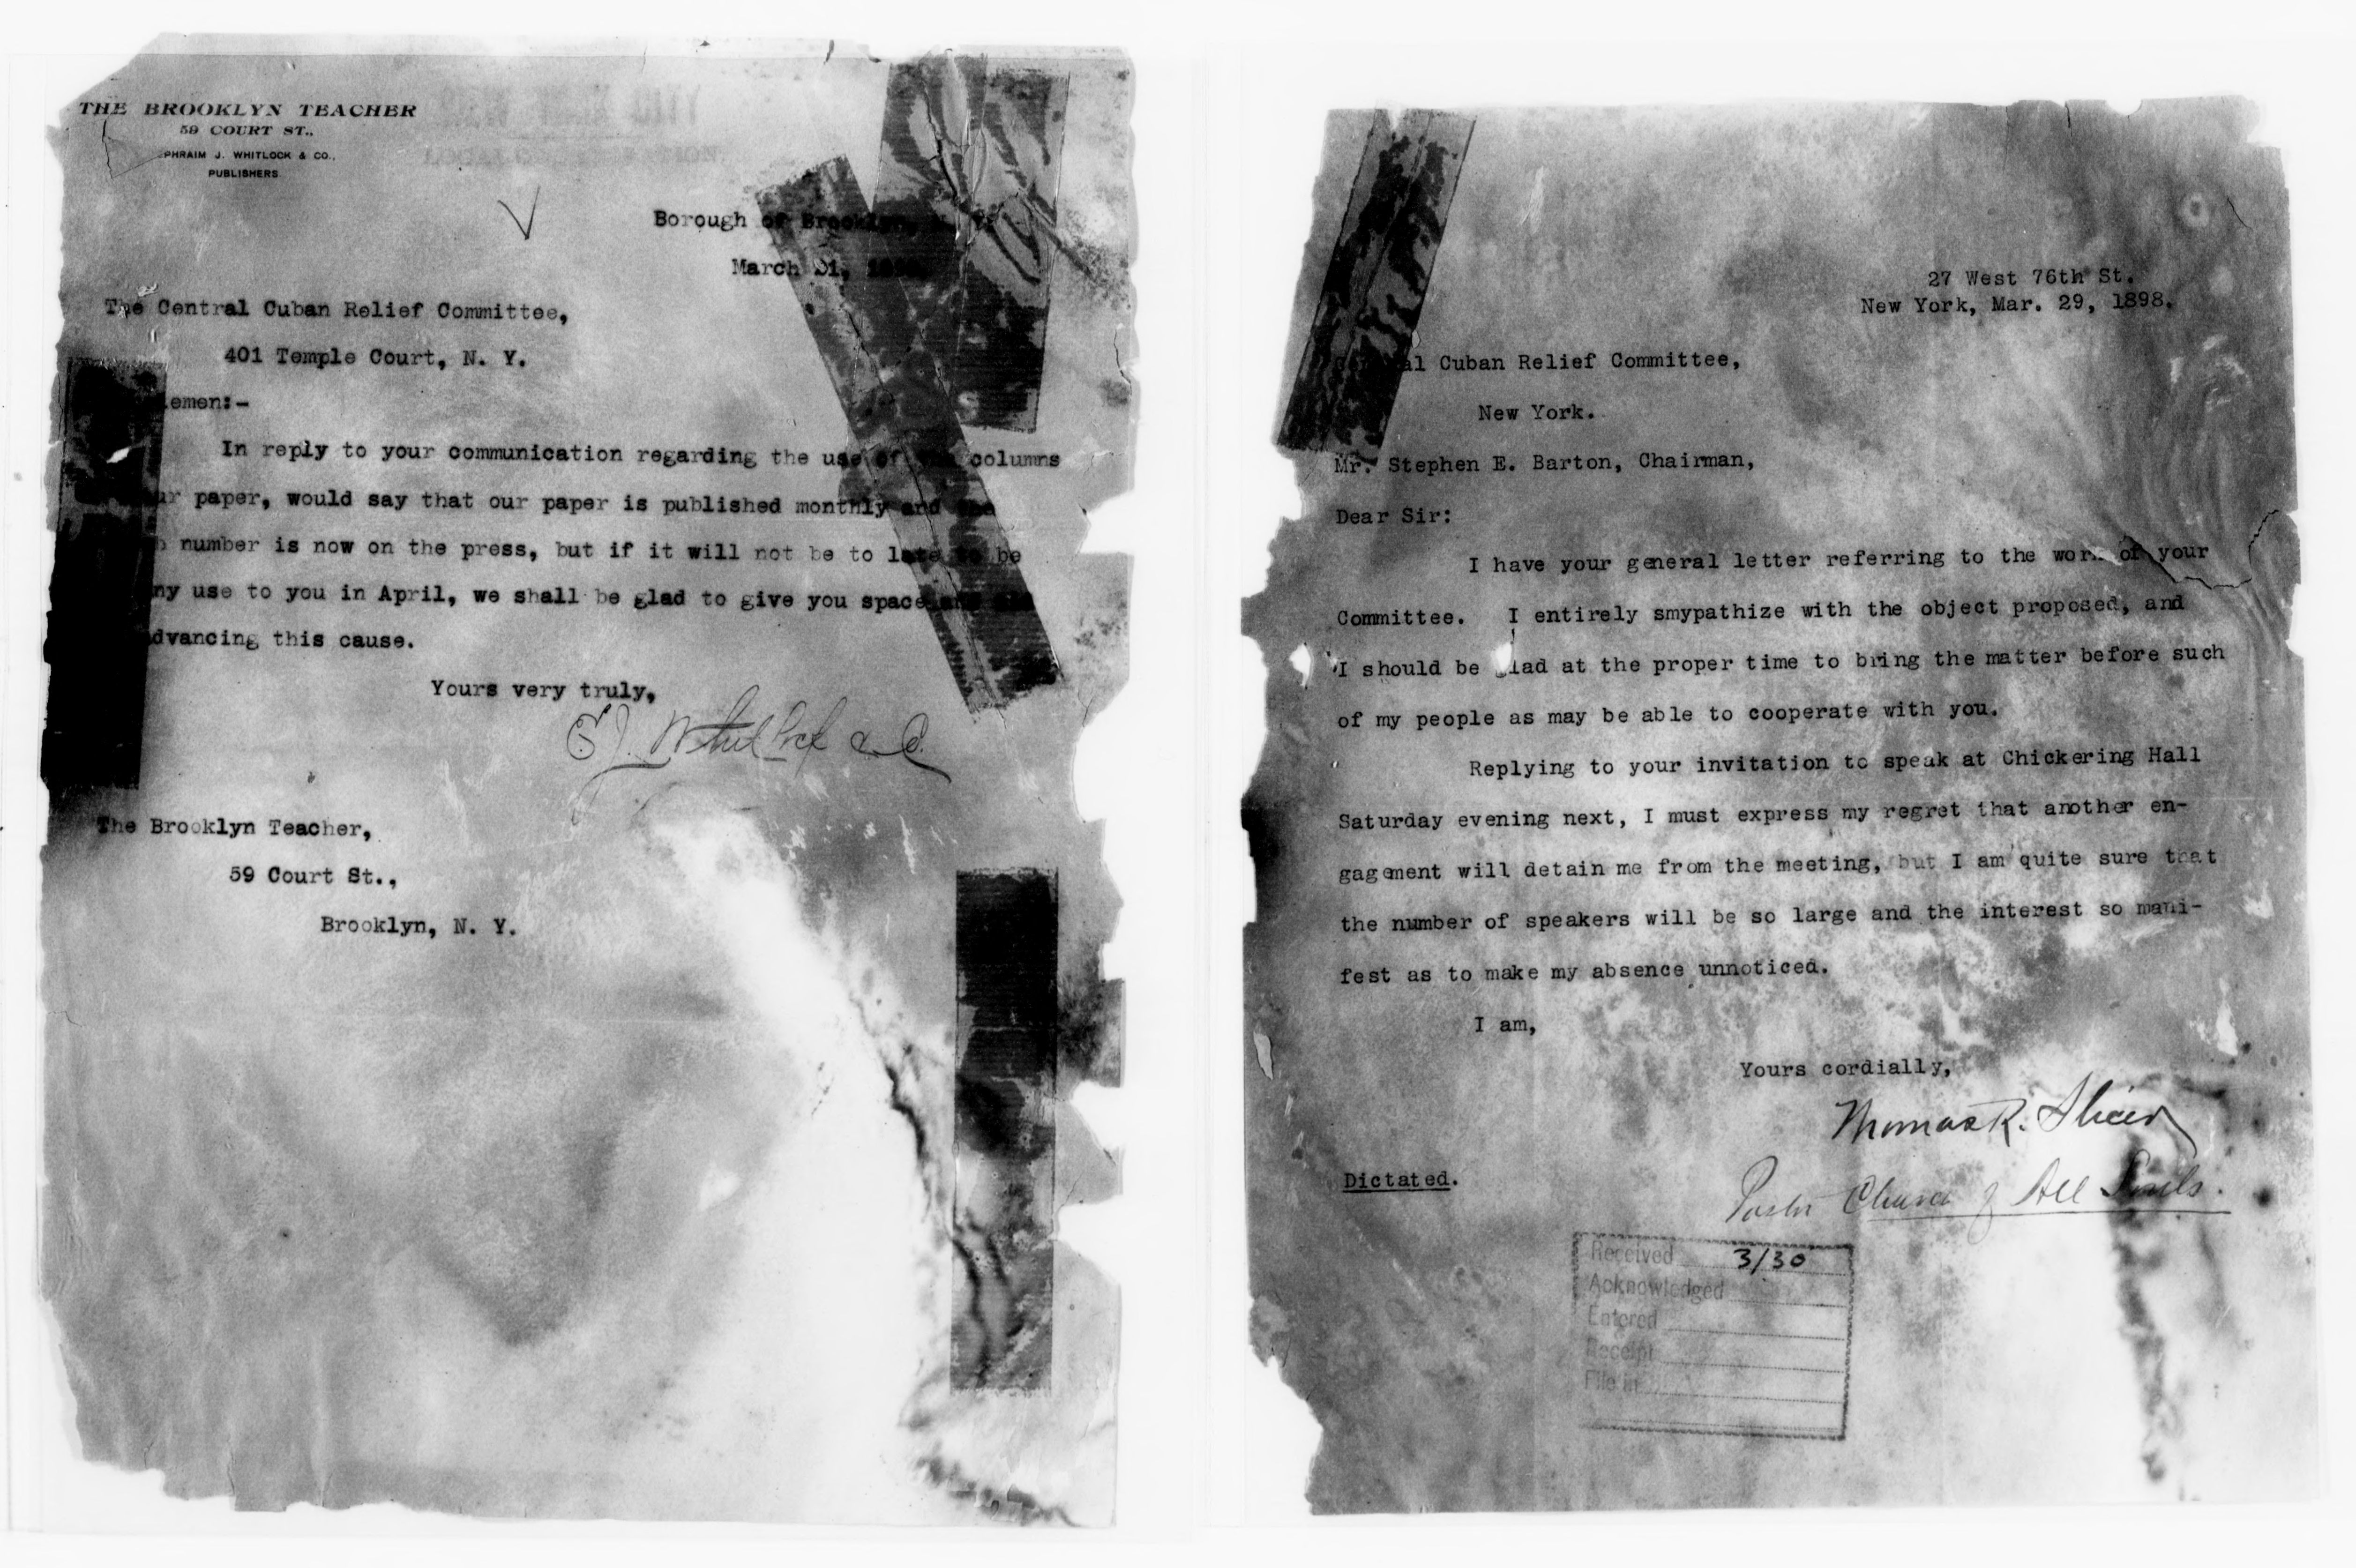 THE BROOKLYN TEACHER
59 COURT ST.,
PHRAIM J. WHITLOCK & CO.,
PUBLISHERS
Borough of Brooklyn, N.
March
The Central Cuban Relief Committee,
401 Temple Court, N. Y.
lemen:-
In reply to your communication regarding the use of columns
ur paper, would say that our paper is published monthly and the
number is now on the press, but if it will not be to late to be
ny use to you in April, we shall be glad to give you space
dvancing this cause.
Yours very truly,
E J. Whitlock & Co.
The Brooklyn Teacher,
59 Court St.,
Brooklyn, N. Y.
27 West 76th St.
New York, Mar. 29, 1898.
al Cuban Relief Committee,
New York.
Mr. Stephen E. Barton, Chairman,
Dear Sir:
I have your general letter referring to the work of your
Committee. I entirely smypathize with the object proposed, and
I should be glad at the proper time to bring the matter before such
of my people as may be able to cooperate with you.
Replying to your invitation to speak at Chickering Hall
Saturday evening next, I must express my regret that another en-
gagement will detain me from the meeting, but I am quite sure that
the number of speakers will be so large and the interest so mani-
fest as to make my absence unnoticed.
I am,
Yours cordially,
Thomas R. Slicer
Dictated.
Pastor Church of All Souls.
Received 3/30
Acknowledged
Entered
Receipt
File in